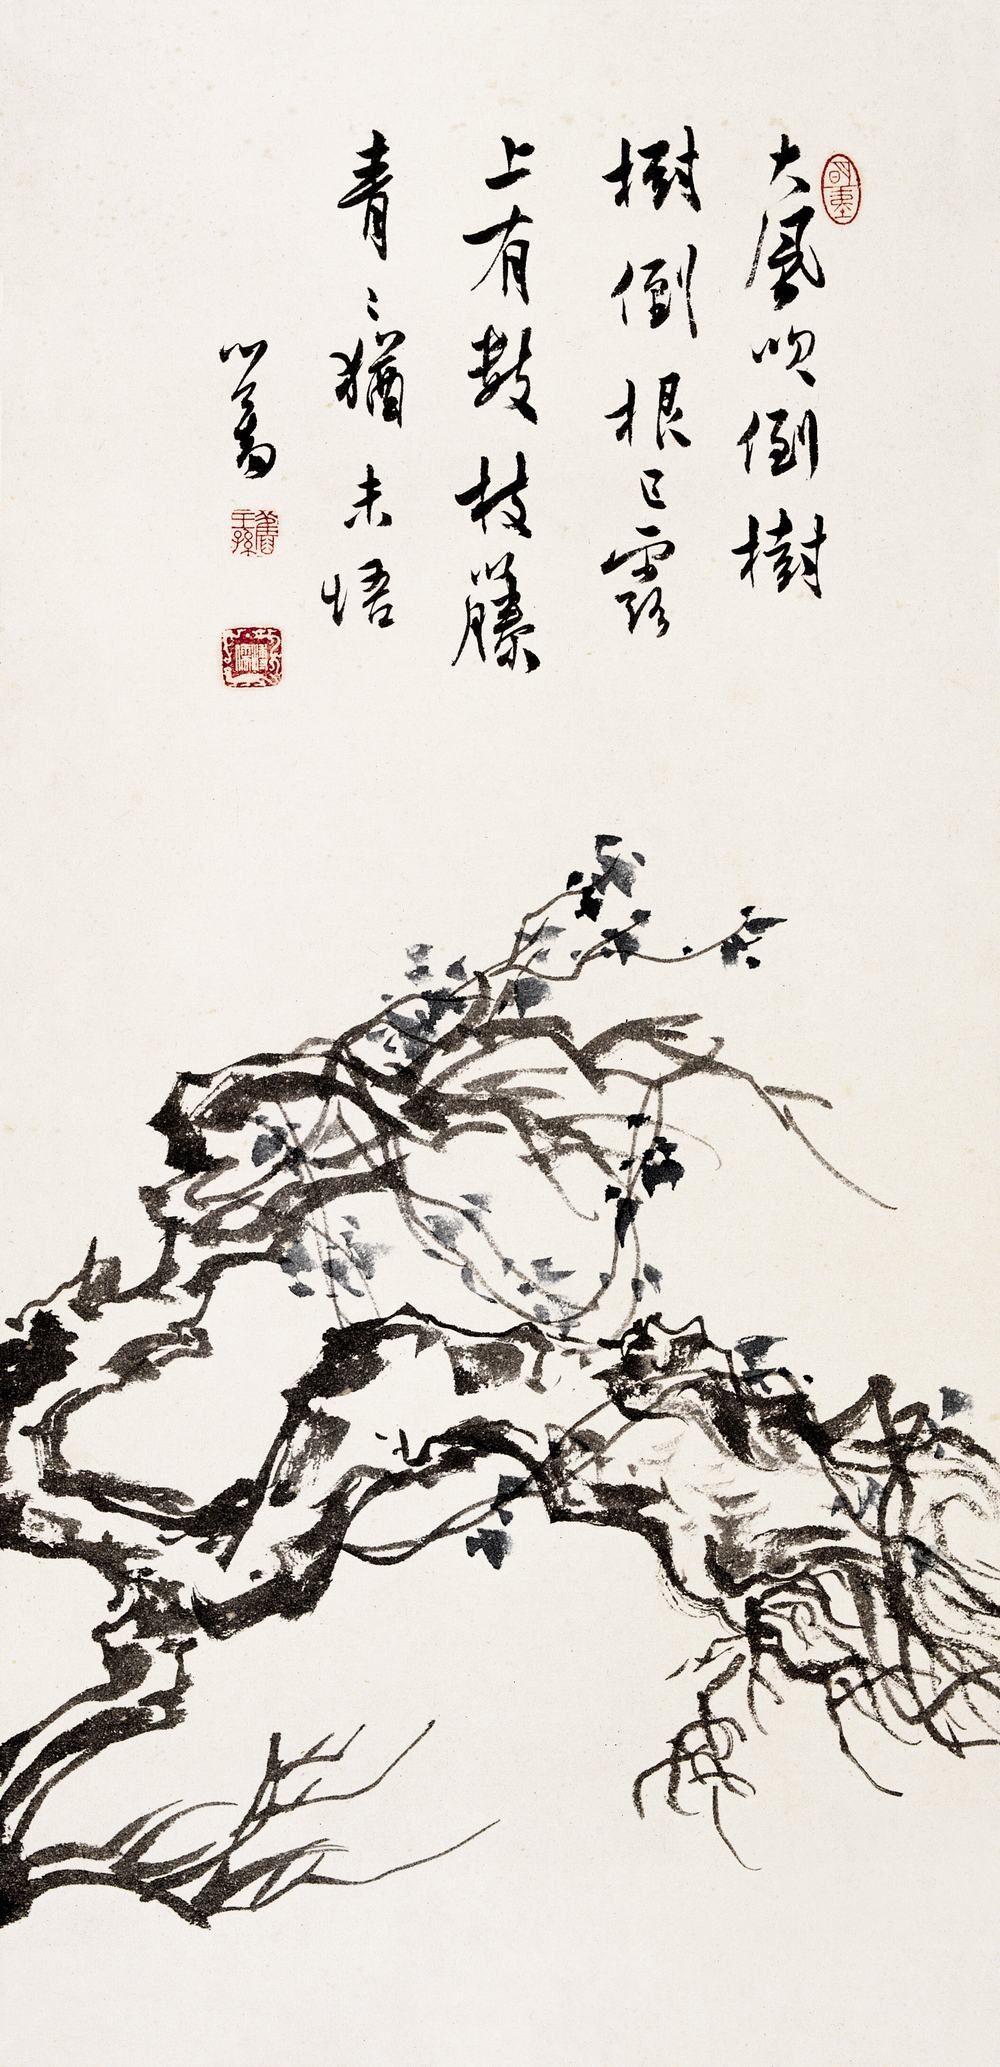 大風吹倒樹
樹倒根已露
上有數枝藤
青〻猶未悟
心畬
舊王孫